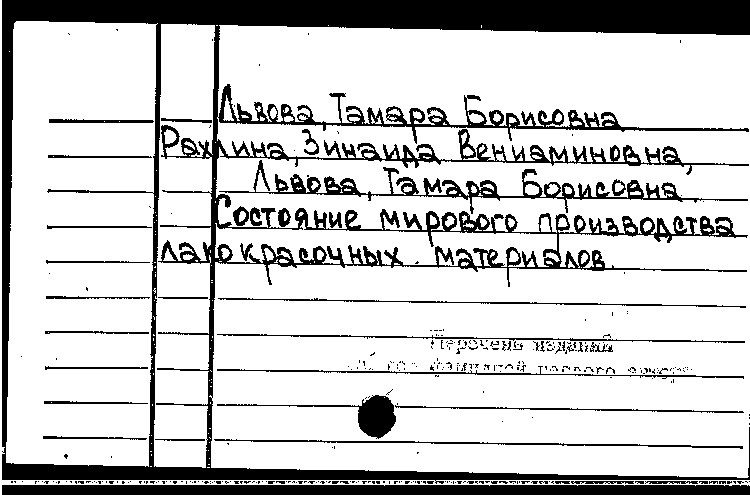 Львова, Тамара Борисовна
Рахлина, Зинаида Вениаминовна,
Львова, Тамара Борисовна.
Состояние мирового производства
лакокрасочных материалов.
Перечень изданий
под фамилией первого автора